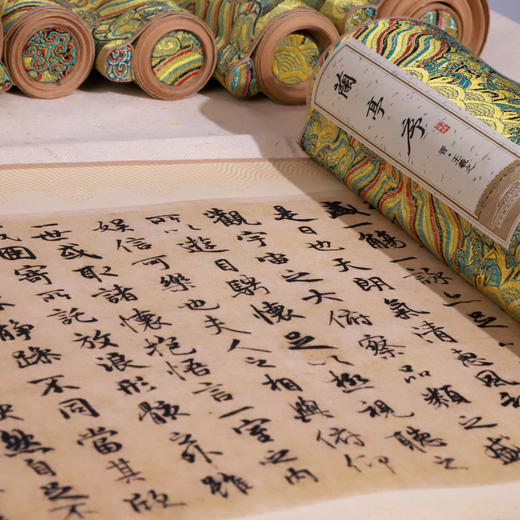 蘭亭序
晉·王羲之
盛一觴一詠
是日也天朗氣清惠風和
觀宇宙之大俯察品類之盛
所以遊目騁懷足以極視聽之
娛信可樂也夫人之相與俯仰
一世或取諸懷抱悟言一室之內
因寄所託放浪形骸之外雖
靜躁不同當其欣
然自足不